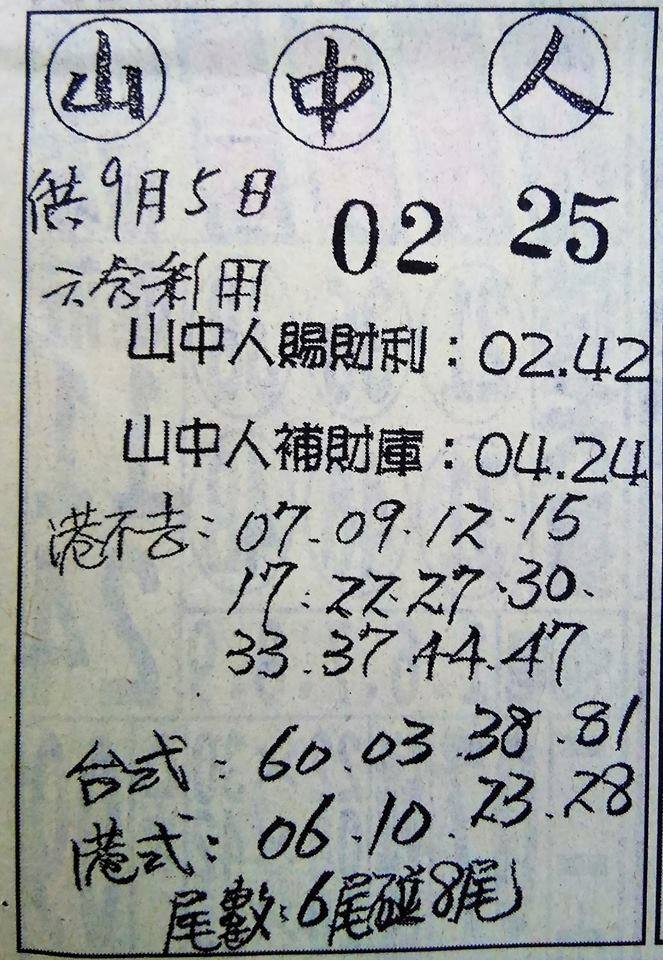 山中人
供9月5日
02 25
六合利用
山中人賜財利：02.42
山中人補財庫：04.24
港不去：07.09.12.15
17.22.27.30.
33.37.44.47
台式：60.03.38.81
港式：06.10.23.28
尾數：6尾碰8尾